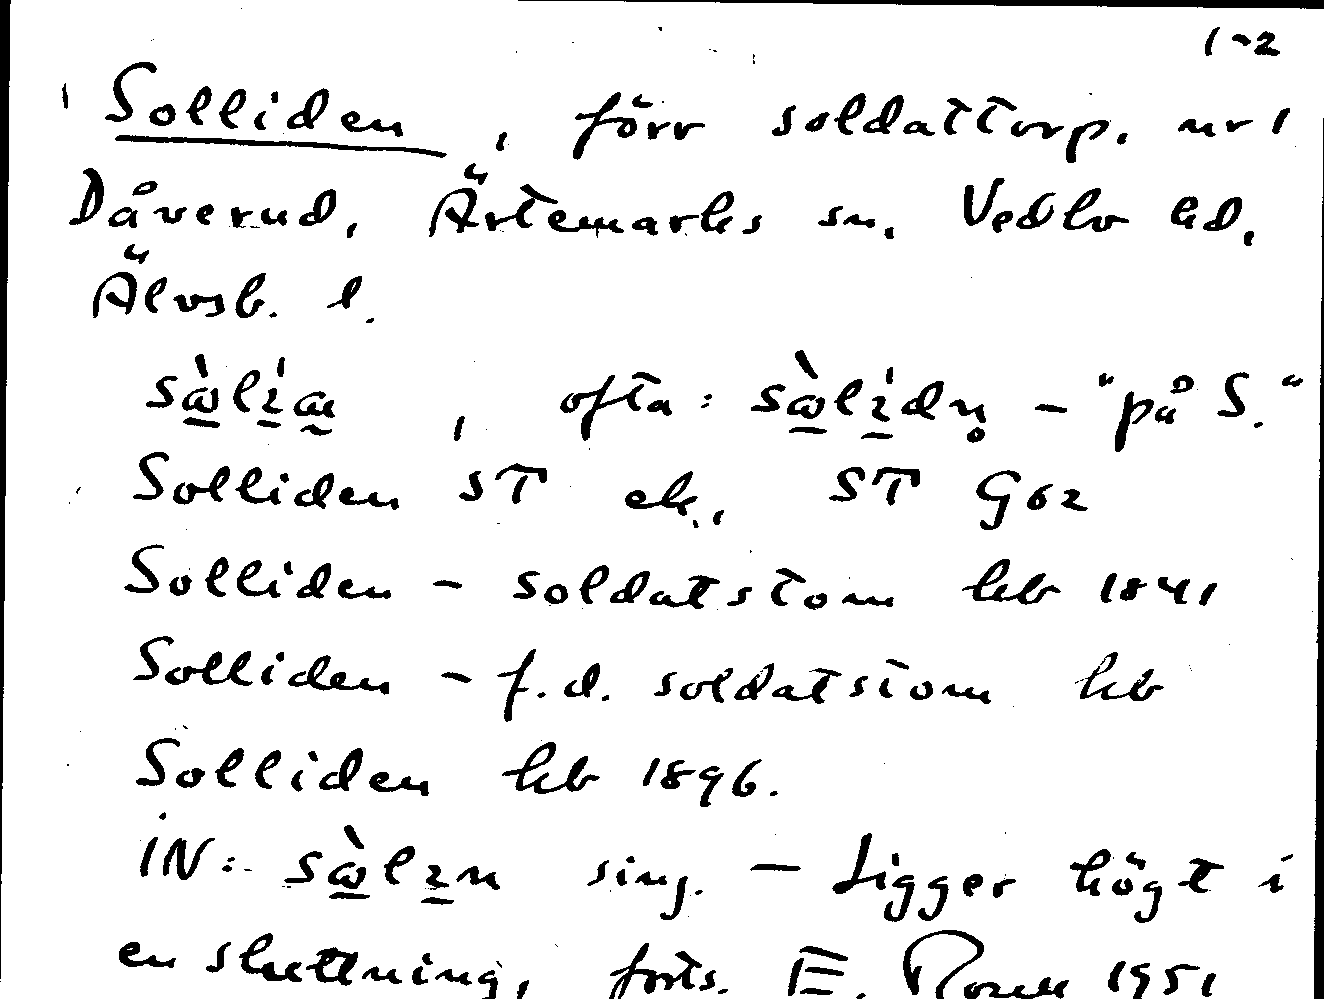 1-2
Solliden, förr soldattorp. nr 1
Dåverud, Ärtemarks sn. Vedbo hd.
Älvsb. l.
, ofta: - "på S."
Solliden ST ek., ST G62
Solliden - soldatstom hb 1841
Solliden - f.d. soldatstom hb
Solliden hb 1896.
IN: sing. - Ligger högt i
en sluttning, forts. E. 1951